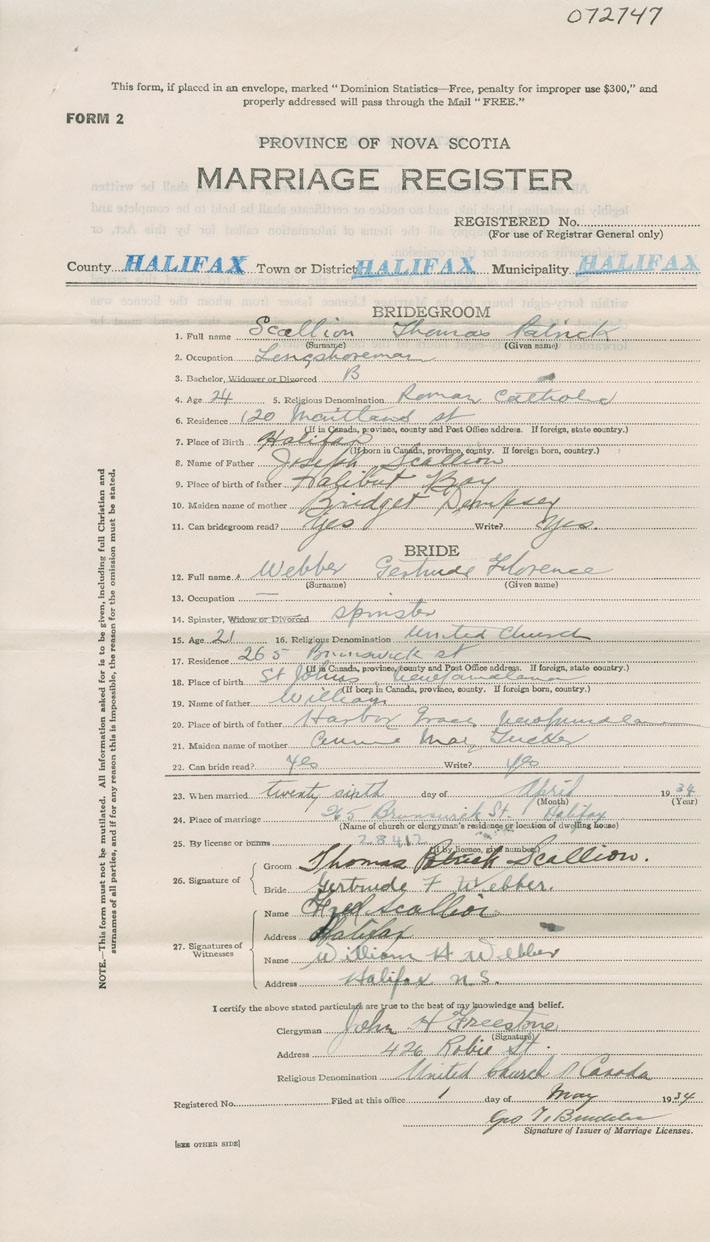 072747
This form, if placed in an envelope, marked "Dominion Statistics—Free, penalty for improper use $300," and
properly addressed will pass through the Mail "FREE."
FORM 2
PROVINCE OF NOVA SCOTIA
MARRIAGE REGISTER
REGISTERED No.
(For use of Registrar General only)
County HALIFAX Town or District HALIFAX Municipality HALIFAX
BRIDEGROOM
1. Full name Scallion Thomas Patrick
(Surname) (Given name)
2. Occupation Longshoreman
3. Bachelor, Widower or Divorced B
4. Age 24 5. Religious Denomination Roman Catholic
6. Residence 120 Maitland st
(If in Canada, province, county and Post Office address. If foreign, state country.)
7. Place of Birth Halifax
(If born in Canada, province, county. If foreign born, country.)
8. Name of Father Joseph Scallion
9. Place of birth of father Halibut Bay
10. Maiden name of mother Bridget Dempsey
11. Can bridegroom read? Yes Write? Yes.
BRIDE
12. Full name Webber Gertrude Florence
(Surname) (Given name)
13. Occupation —
14. Spinster, Widow or Divorced Spinster
15. Age 21 16. Religious Denomination United Church
17. Residence 265 Brunswick st
(If in Canada, province, county and Post Office address. If foreign, state country.)
18. Place of birth St Johns, Newfoundland
(If born in Canada, province, county. If foreign born, country.)
19. Name of father William
20. Place of birth of father Harbor Grace, Newfoundland
21. Maiden name of mother Annie May Tucker
22. Can bride read? Yes Write? yes
23. When married twenty sixth day of April 1934
(Month) (Year)
24. Place of marriage Brunswick St. Halifax
(Name of church or clergyman's residence or location of dwelling house)
25. By license or banns
(If by licence, give number)
26. Signature of Groom Thomas Patrick Scallion.
Bride Gertrude F Webber.
27. Signatures of Witnesses Name Fred Scallion
Address Halifax
Name William H Webber
Address Halifax N.S.
I certify the above stated particulars are true to the best of my knowledge and belief.
Clergyman John H Freestone
(Signature)
Address 426 Robie St.
Religious Denomination United Church of Canada
Registered No. Filed at this office 1 day of May 1934
Geo T.
Signature of Issuer of Marriage Licenses.
[SEE OTHER SIDE]
NOTE.—This form must not be mutilated. All information asked for is to be given, including full Christian and
surnames of all parties, and if for any reason this is impossible, the reason for the omission must be stated.